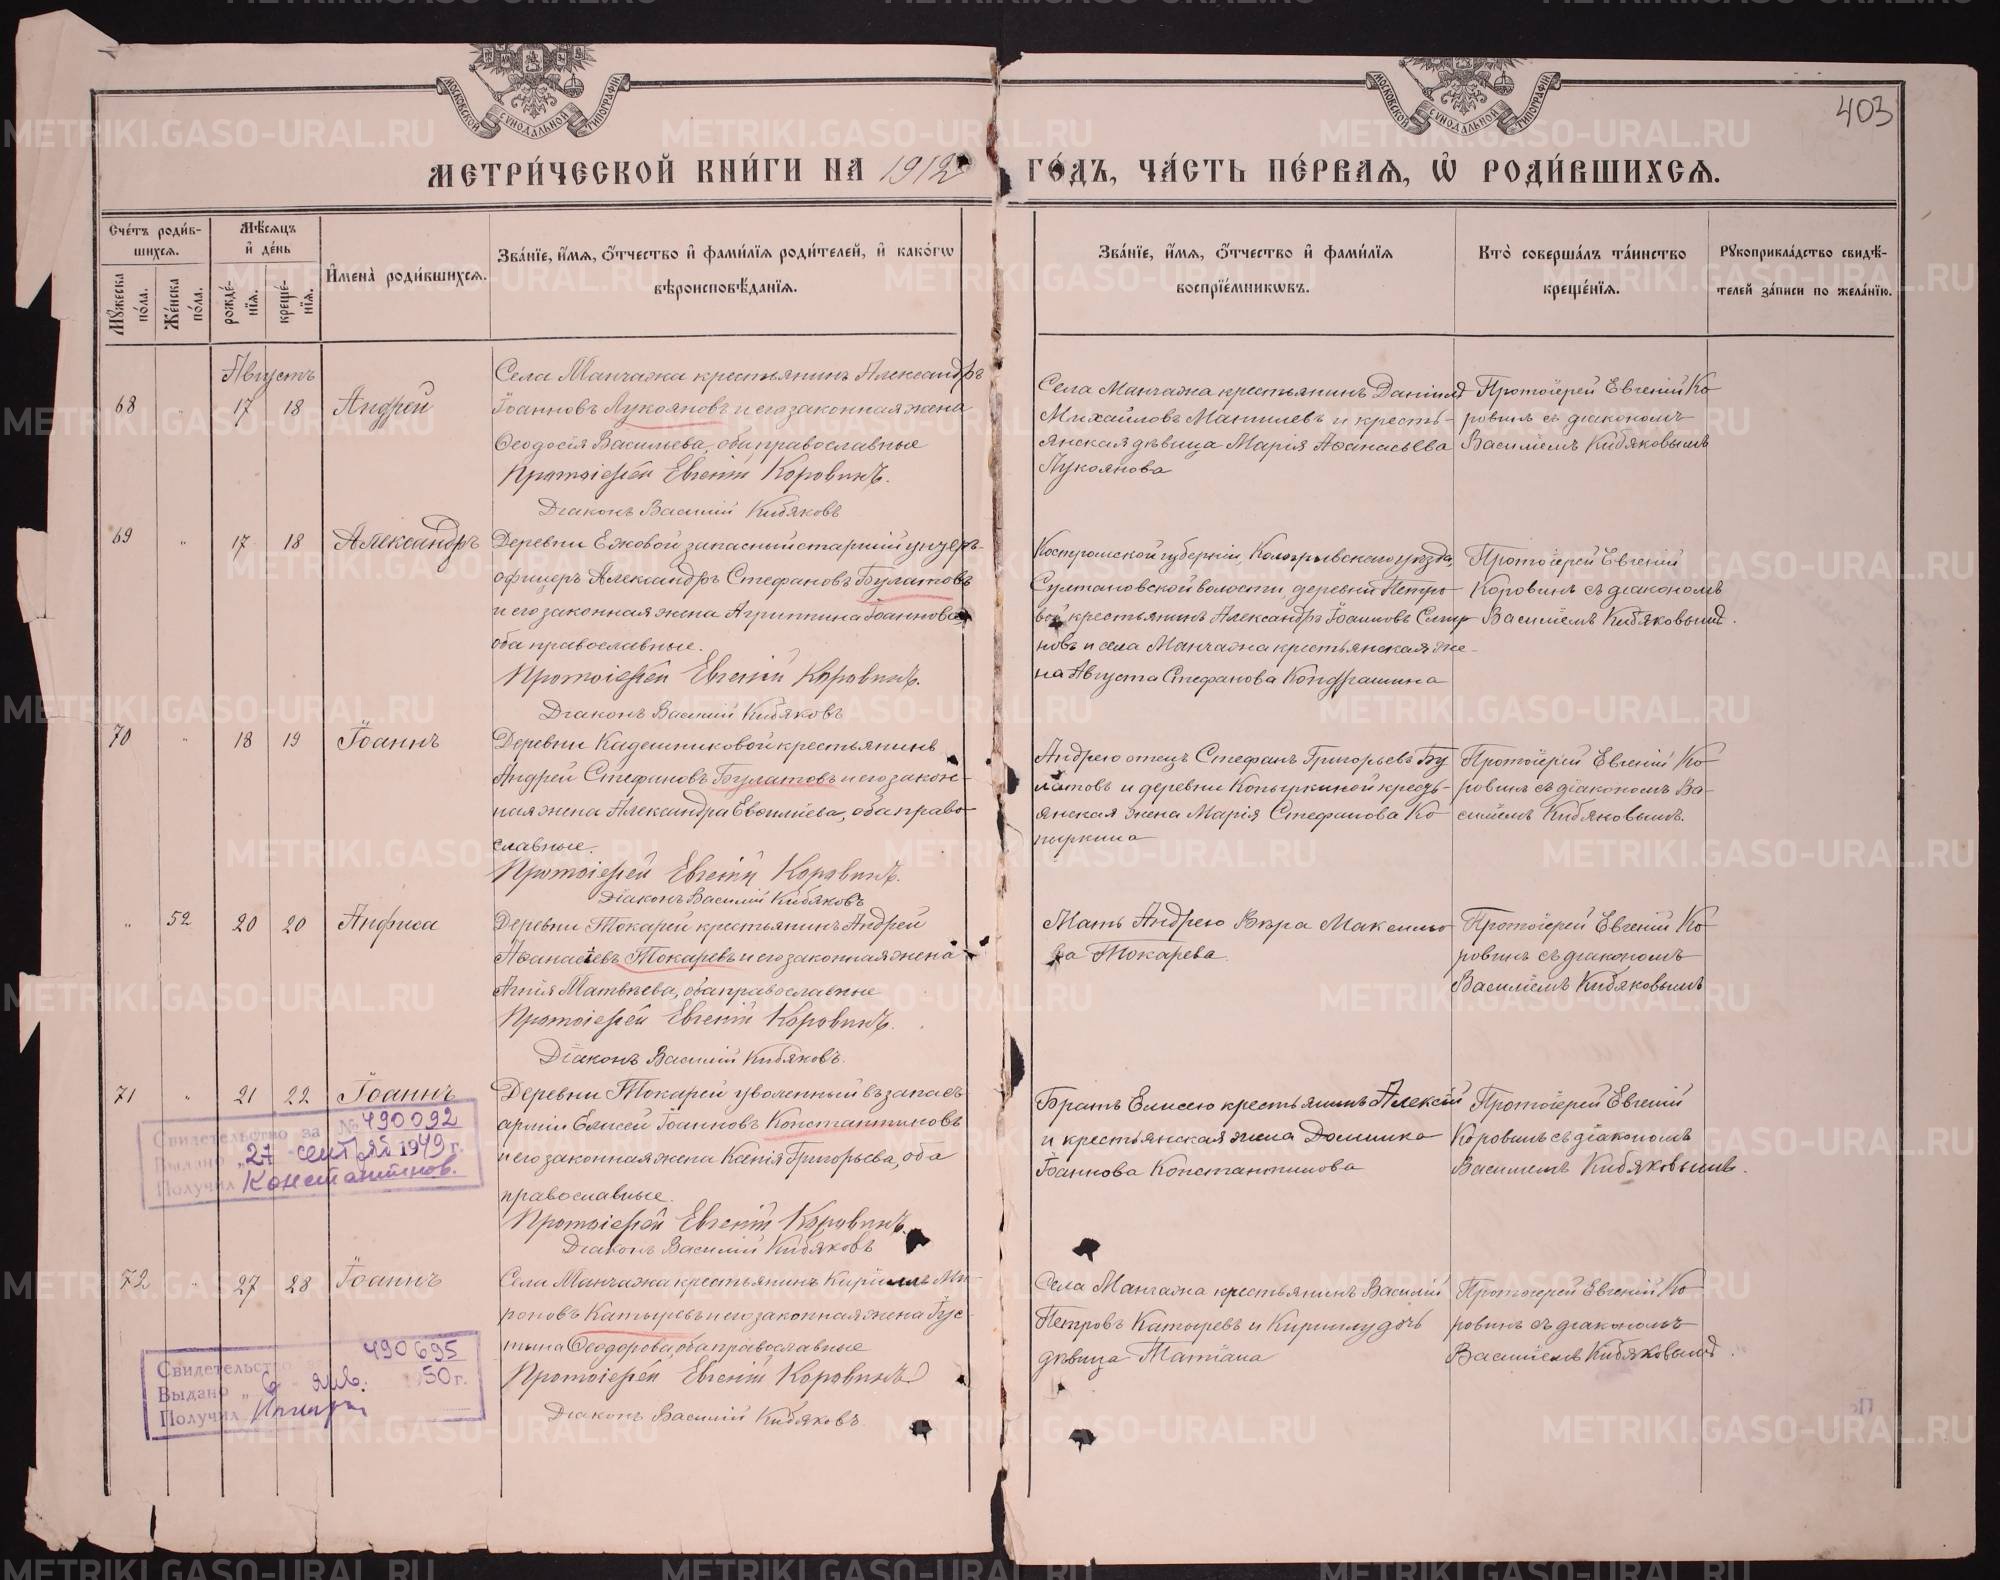 403
МОСКОВСКОЙ СѴНОДАЛЬНОЙ ТИПОГРАФІИ
МОСКОВСКОЙ СѴНОДАЛЬНОЙ ТИПОГРАФІИ
МЕТРИ́ЧЕСКОЙ КНИ́ГИ НА 1912 ГО́ДЪ, ЧА́СТЬ ПЕ́РВАЯ, Ѡ҆ РОДИ́ВШИХСЯ.
Сче́тъ роди́в-
шихся.
Мꙋжеска по́ла.
Же́нска по́ла.
Мѣ́сяцъ и҆ де́нь
рожде́-
нїя.
креще́-
нїя.
И҆мена̀ роди́вшихся.
Зва́нїе, и҆́мя, ѻ҆́тчество и҆ фами́лїя роди́телей, и҆ како́гѡ
вѣроисповѣ́данїя.
Зва́нїе, и҆́мя, ѻ҆́тчество и҆ фами́лїя
воспрїе́мникѡвъ.
Кто̀ соверша́лъ та́инство
креще́нїя.
Рꙋкоприкла́дство свидѣ́-
телей за́писи по жела́нїю.
Августъ
68 " 17 18 Андрей
Села Манчажа крестьянинъ Александръ
Іоанновъ Лукояновъ и его законная жена
Ѳеодосія Васильева, оба православные
Протоіерей Евгеній Коровинъ.
Діаконъ Василій Кибяковъ
Села Манчажа крестьянинъ Даніилъ
Михайловъ Мантиевъ и кресть-
янская дѣвица Марія Аѳанасьева
Лукоянова
Протоіерей Евгеній Ко-
ровинъ съ діакономъ
Василіемъ Кибяковымъ
69 " 17 18 Александръ
Деревни Ежовой запасный старшій унтеръ-
офицеръ Александръ Стефановъ Булатовъ
и его законная жена Агриппина Іоаннова
оба православные.
Протоіерей Евгеній Коровинъ.
Діаконъ Василій Кибяковъ
Костромской губерніи, Кологривскаго уѣзда,
Султановской волости, деревни Петро-
вой крестьянинъ Александръ Іоанновъ Смир
новъ и села Манчажа крестьянская же-
на Августа Стефанова Кондрашина
Протоіерей Евгеній
Коровинъ съ діакономъ
Василіемъ Кибяковымъ.
70 " 18 19 Іоаннъ
Деревни Кадешниковой крестьянинъ
Андрей Стефановъ Булатовъ и его закон-
ная жена Александра Евѳиміева, оба право-
славные.
Протоіерей Евгеній Коровинъ.
Діаконъ Василій Кибяковъ
Андрею отецъ Стефанъ Григорьевъ Бу
латовъ и деревни Копыркиной кресть-
янская жена Марія Стефанова Ко
пыркина
Протоіерей Евгеній Ко-
ровинъ съ діакономъ Ва-
силіемъ Кибяковымъ.
" 52 20 20 Анфиса
Деревни Токарей крестьянинъ Андрей
Аѳанасіевъ Токаревъ и его законная жена
Агнія Матвѣева, оба православные
Протоіерей Евгеній Коровинъ.
Діаконъ Василій Кибяковъ.
Мать Андрею Вѣра Максимо
ва Токарева.
Протоіерей Евгеній Ко-
ровинъ съ діакономъ
Василіемъ Кибяковымъ
71 " 21 22 Іоаннъ
Деревни Токарей уволенный въ запасъ
арміи Елисей Іоанновъ Константиновъ
и его законная жена Ксенія Григорьева, оба
православные.
Протоіерей Евгеній Коровинъ.
Діаконъ Василій Кибяковъ
Братъ Елисею крестьянинъ Алексій
и крестьянская жена Домника
Іоаннова Константинова
Протоіерей Евгеній
Коровинъ съ діакономъ
Василіемъ Кибяковымъ.
Свидетельство за № 490092
Выдано „27 сентяб 1949 г.
Получил Константинов.
72 " 27 28 Іоаннъ
Села Манчажа крестьянинъ Кириллъ Ми-
роновъ Катыревъ и его законная жена Іус-
тина Ѳеодорова, оба православные
Протоіерей Евгеній Коровинъ
Діаконъ Василій Кибяковъ.
Села Манчажа крестьянинъ Василій
Петровъ Катыревъ и Кириллу дочь
дѣвица Татіана
Протоіерей Евгеній Ко-
ровинъ съ діакономъ
Василіемъ Кибяковымъ.
Свидетельство 490695
Выдано „ 6 янв. 50 г.
Получил
METRIKI.GASO-URAL.RU